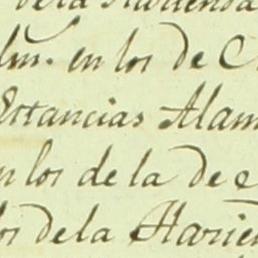 de la Hacienda
en los de
Estancias Alam
en los de la de
los dela Harien